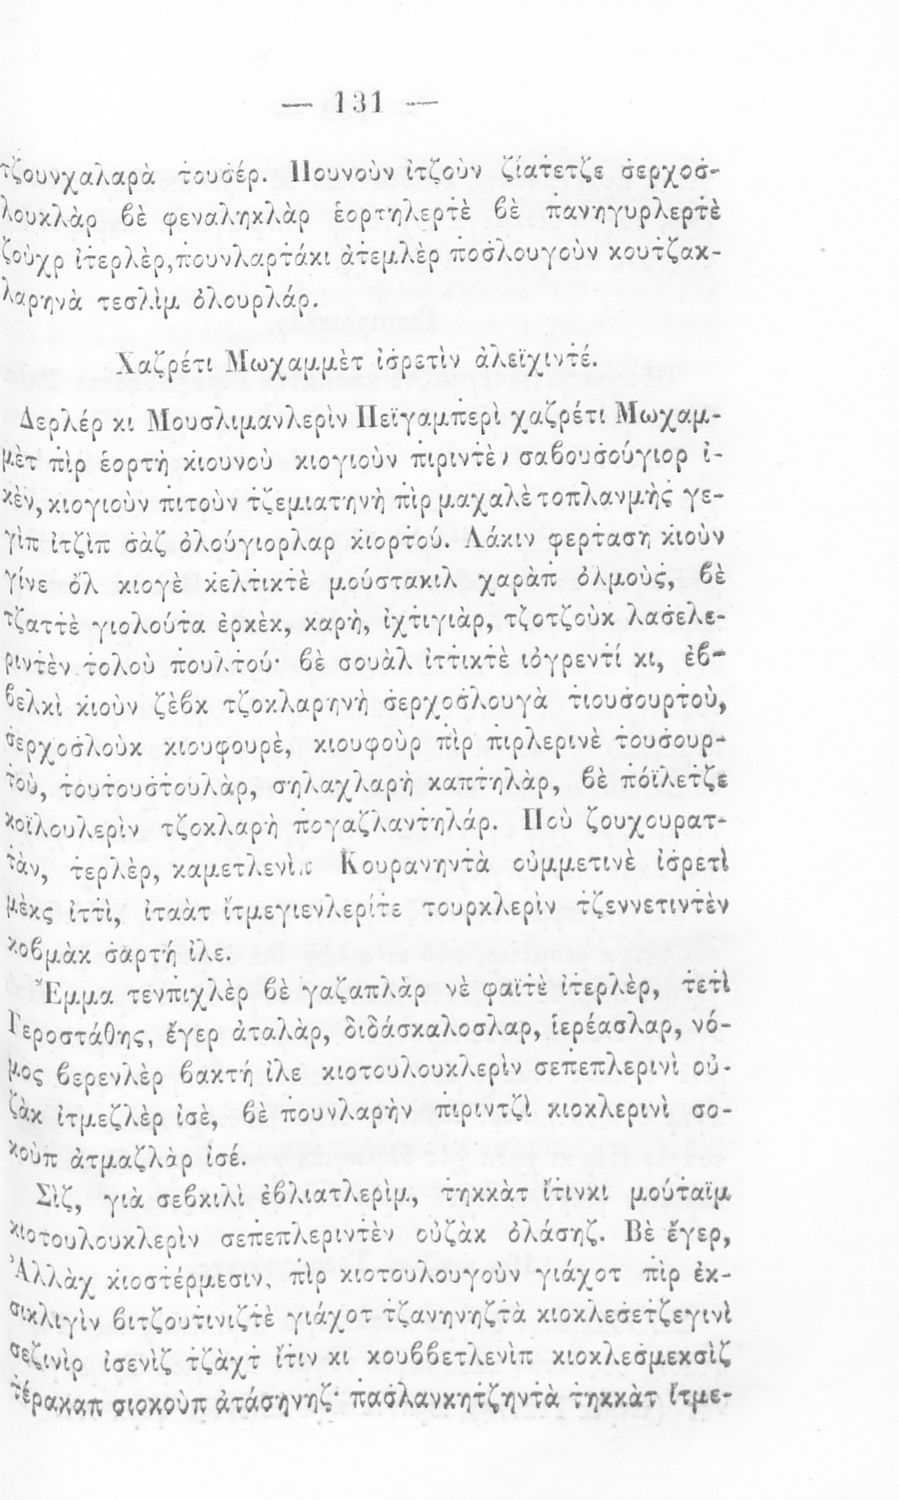 — 131 —
τζουνχαλαρὰ τουσέρ. Πουνοὺν ἰτζοὺν ζίατετζε σερχοσ-
λουκλὰρ βὲ φεναληκλὰρ ἑορτηλερτὲ βὲ πανηγυρλερτὲ
ζοὺχρ ἰτερλὲρ, πουνλαρτάκι ἀτεμλὲρ ποσλουγοὺν κουτζακ-
λαρηνὰ τεσλὶμ ὀλουρλάρ.
Χαζρέτι Μωχαμμὲτ ἰσρετὶν ἀλεϊχιντέ.
Δερλέρ κι Μουσλιμανλερὶν Πεϊγαμπερὶ χαζρέτι Μωχαμ-
μὲτ πὶρ ἑορτὴ κιουνοὺ κιογιοὺν πιριντὲν σαβουσούγιορ ἰ-
κὲν, κιογιοὺν πιτοὺν τζεμιατηνὴ πὶρ μαχαλὲ τοπλανμὴς γε-
γὶπ ἰτζὶπ σὰζ ὀλούγιορλαρ κιορτού. Λάκιν φερτασῃ κιοὺν
γίνε ὂλ κιογὲ κελτικτὲ μούστακιλ χαρὰπ ὀλμοὺς, βὲ
τζαττὲ γιολούτα ἐρκὲκ, καρὴ, ἰχτιγιὰρ, τζοτζοὺκ λασελε-
ριντὲν τολοὺ πουλτού· βὲ σουὰλ ἰττικτὲ ιόγρεντί κι, ἐβ-
βελκὶ κιοὺν ζὲβκ τζοκλαρηνὴ σερχοσλουγὰ τιουσουρτοὺ,
σερχοσλοὺκ κιουφουρὲ, κιουφοὺρ πὶρ πιρλερινὲ τουσουρ-
τοὺ, τουτουστουλὰρ, σηλαχλαρὴ καπτηλὰρ, βὲ πόϊλετζε
κοϊλουλερὶν τζοκλαρὴ πογαζλαντηλάρ. Ποὺ ζουχουρατ-
τὰν, τερλὲρ, καμετλενὶπ Κουρανηντὰ οὐμμετινὲ ἰσρετὶ
μὲκς ἰττὶ, ἰταὰτ ἴτμεγιενλερίτε τουρκλερὶν τζεννετιντὲν
κοβμὰκ σαρτή ἰλε.
Ἔμμα τενπιχλὲρ βὲ γαζαπλὰρ νὲ φαϊτὲ ἰτερλὲρ, τετὶ
Γεροστάθης, ἔγερ ἀταλὰρ, διδάσκαλοσλαρ, ἱερέασλαρ, νό-
μος βερενλὲρ βακτή ἰλε κιοτουλουκλερὶν σεπεπλερινὶ οὐ-
ζὰκ ἰτμεζλὲρ ἰσὲ, βὲ πουνλαρὴν πιριντζὶ κιοκλερινὶ σο-
κοὺπ ἀτμαζλὰρ ἰσέ.
Σὶζ, γιὰ σεβκιλὶ ἐβλιατλερὶμ, τηκκὰτ ἴτινκι μούταϊμ
κιοτουλουκλερὶν σεπεπλεριντὲν οὐζὰκ ὀλάσηζ. Βὲ ἔγερ,
Ἀλλὰχ κιοστέρμεσιν, πὶρ κιοτουλουγοὺν γιάχοτ πὶρ ἐκ-
σικλιγὶν βιτζουτινιζτὲ γιάχοτ τζανηνηζτὰ κιοκλεσετζεγινὶ
σεζινὶρ ἰσενὶζ τζὰχτ ἴτιν κι κουββετλενὶπ κιοκλεσμεκσὶζ
τέρακαπ σιοκοὺπ ἀτάσηνηζ· πασλανκητζηντὰ τηκκὰτ ἴτμε-